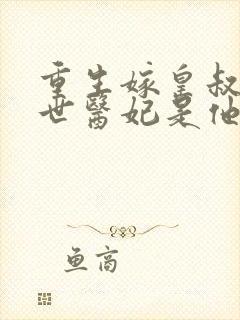 重生嫁皇叔
世醫妃是他
鱼高